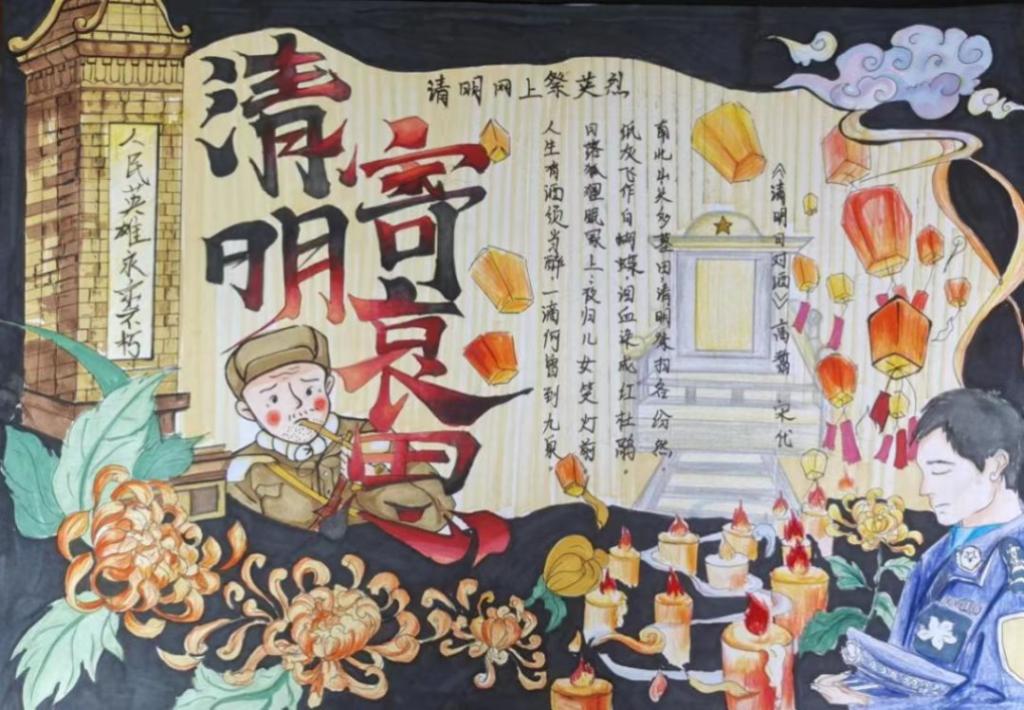 人民英雄永垂不朽
清明
寄哀思
清明网上祭英烈
《清明日对酒》 高翥 宋代
南北山头多墓田清明祭扫各纷然。
纸灰飞作白蝴蝶泪血染成红杜鹃。
日落狐狸眠冢上,夜归儿女笑灯前
人生有酒须当醉,一滴何曾到九泉。